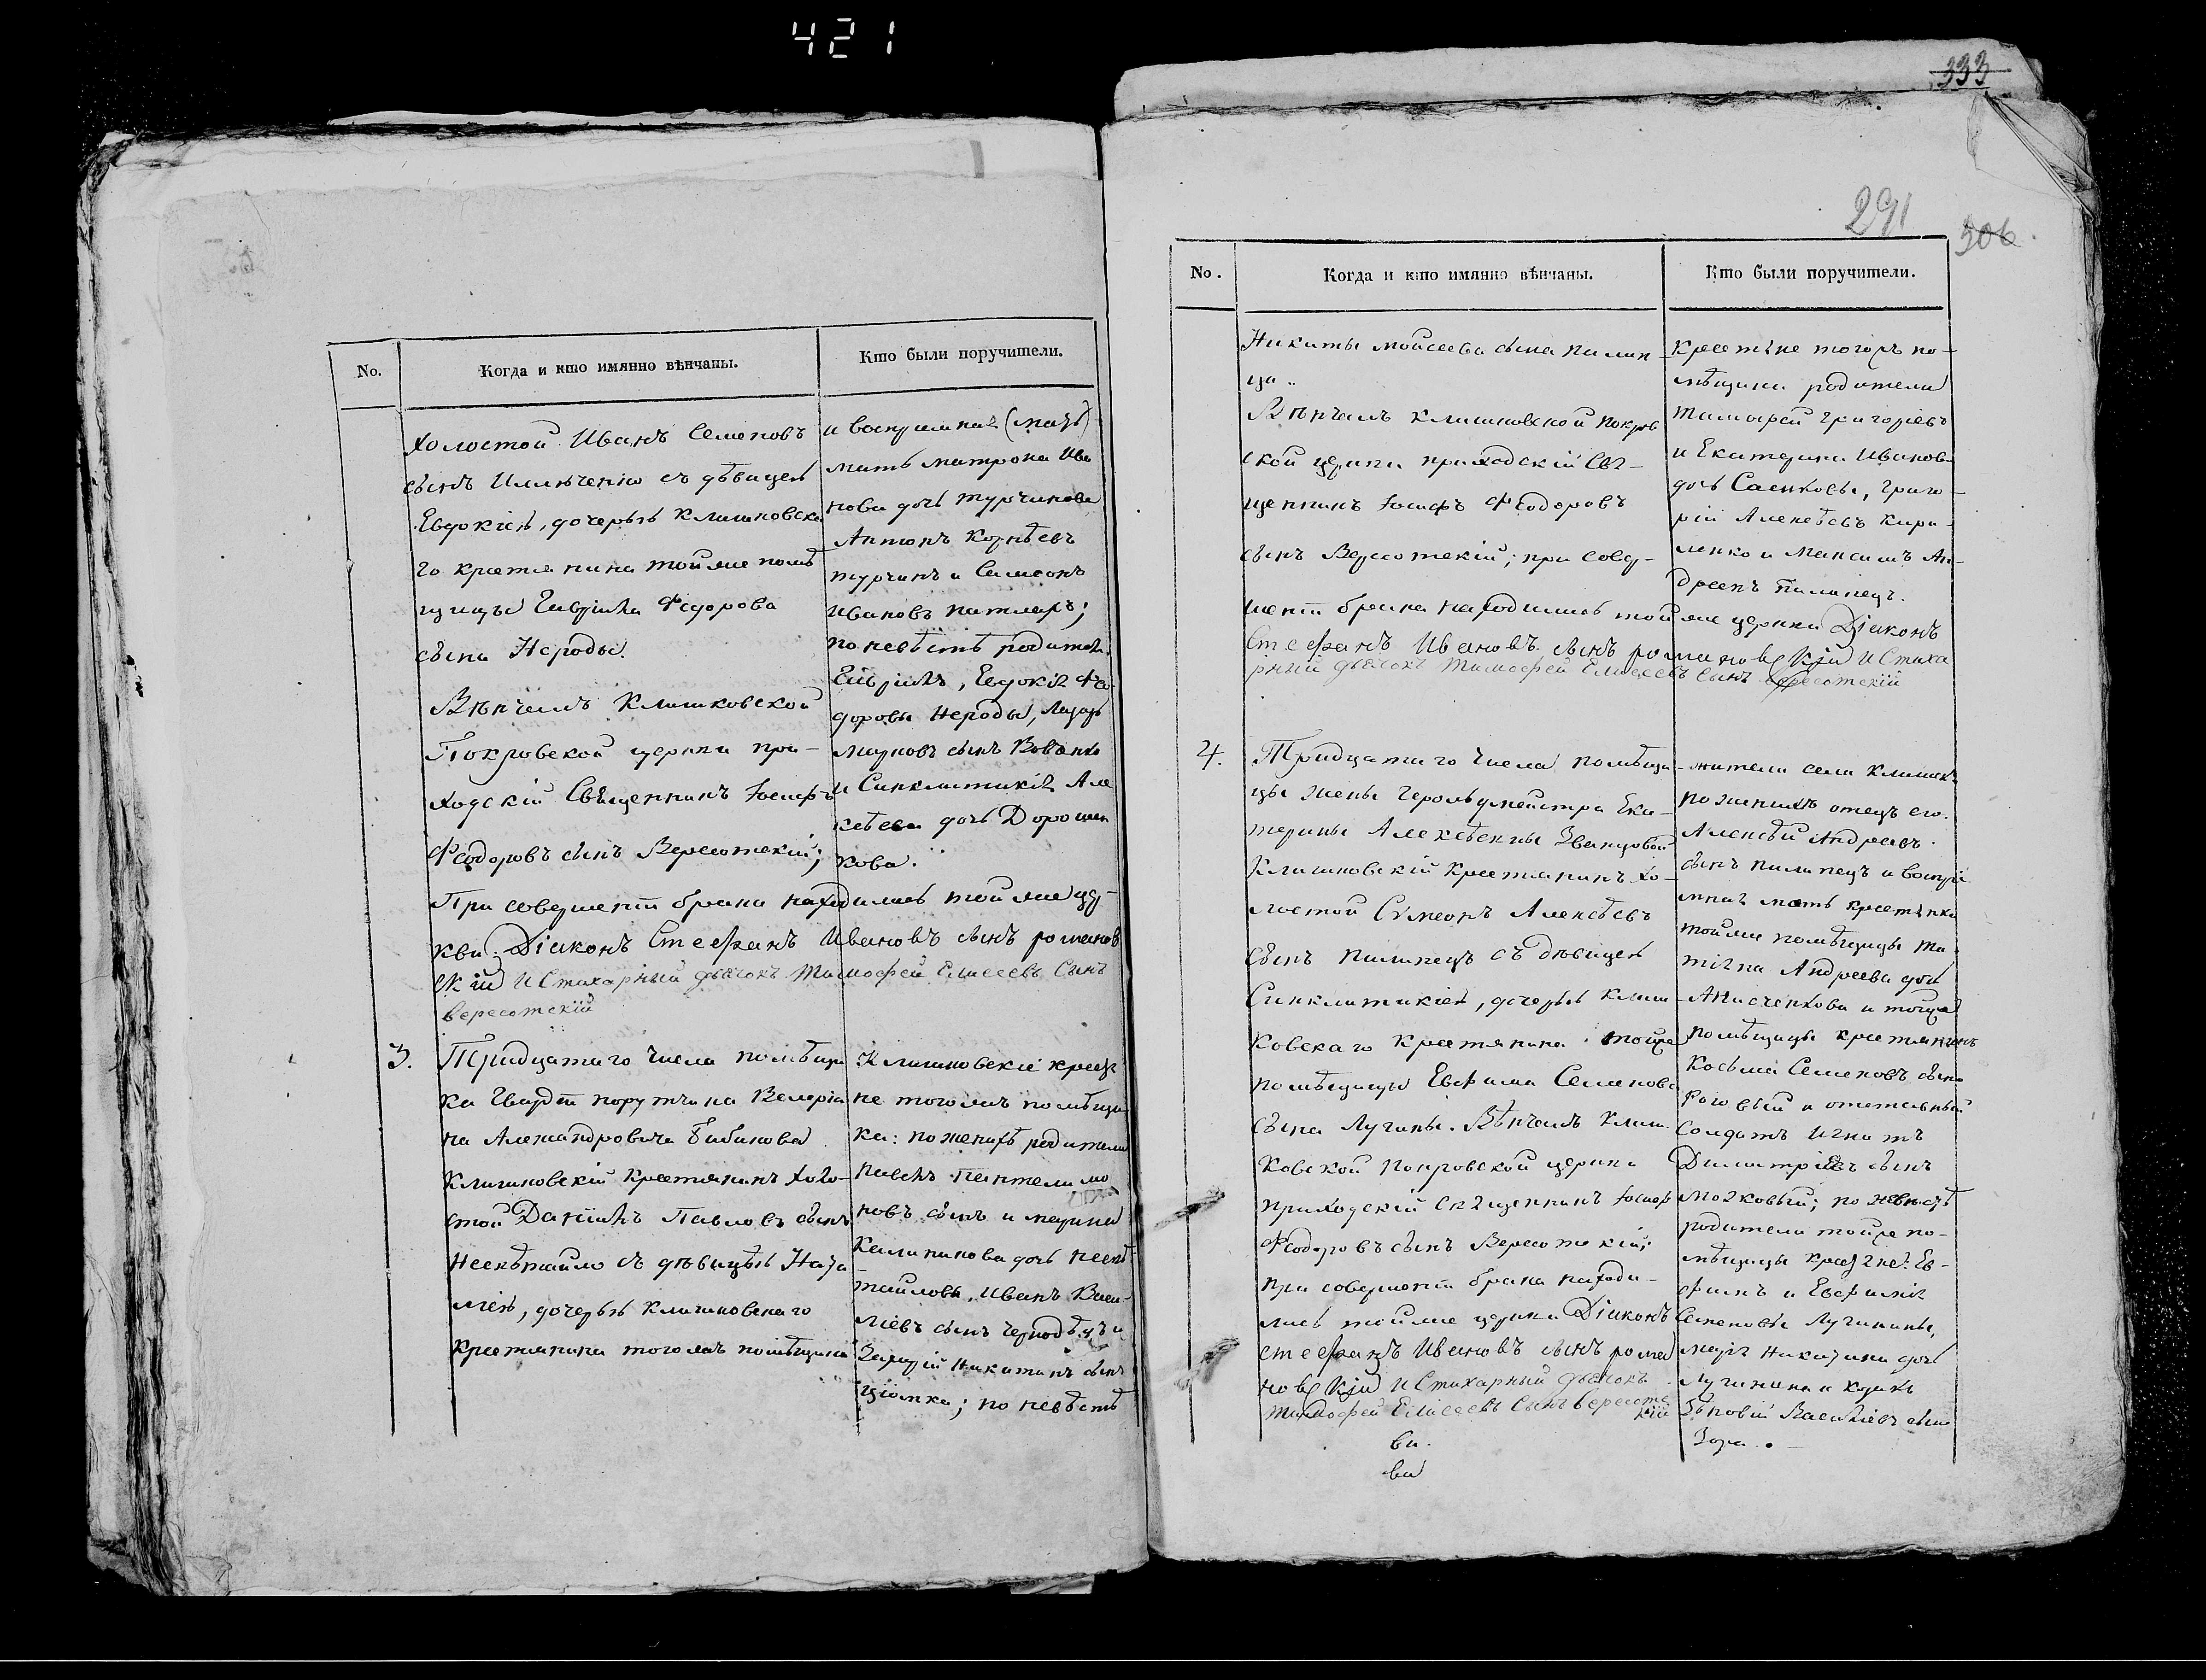 421
333
291
306
No.
Когда и кто имянно вѣнчаны.
Кто были поручители.
холостой Иванъ Семеновъ
сынъ съ дѣвицею
Евдокіею, дочерью Клишковска
го крестянина тойже помѣ
щицы Гаврила Федорова
сына Нероды.
Вѣнчалъ Клишковской
Покровской церкви при-
ходскій Священникъ Іосифъ
Феодоровъ сынъ Вересотскій;
При совершеніи брака находились тойже цер-
кви: Діаконъ Стефанъ Ивановъ сынъ романов
скій и Стихарный дьячокъ Тимофей Елисеевъ Сынъ
вересотскій
и воспріемная (мать)
мать матрона Ива
нова дочь турчинова
Антонъ Корнѣевъ
турчинъ и Симеонъ
Ивановъ
по невѣстѣ родители
Гавріилъ, Евдокія Фео-
дорова Нероды, Лазарь
сынъ
и Синклитикія Але
ксѣева дочь Дорошен
кова.
3.
Тридцатаго числа помѣщи
ка Гвардіи порутчика Валеріа
на Александровича Бибикова
Клишковскій Крестянинъ холо-
стой Даніилъ Павловъ сынъ
съ дѣвицею Ната
ліею, дочерью Клишковскаго
Крестянина тогожъ помѣщика
Клишковскіе крестя
не тогожъ помѣщи
ка: по женихѣ родители
Павелъ Пантелимо
новъ сынъ и марина
Калиникова дочь
Иванъ Васи-
ліевъ сынъ и
Никитинъ сынъ
по невѣстѣ
No.
Когда и кто имянно вѣнчаны.
Кто были поручители.
Никиты моисеева сына пилип
ца..
Вѣнчалъ клишковской покров
ской церкви приходскій Свя-
щенникъ Іосифъ Феодоровъ
сынъ Вересотскій; при совер-
шеніи брака находились тойже церкви Діаконъ
Стефанъ Ивановъ сынъ романовскій и Стиха
рный дьячокъ Тимофей Елисеевъ Сынъ вересотскій
крестяне тогожъ по-
мѣщика родители
Тимофей Григоріевъ
и Екатерина Иванова
дочь Григо-
рій Алексѣевъ Кири-
ленко и Максимъ Ан-
дреевъ Пилипецъ.
4.
Тридцатаго числа помѣщи
цы жены Герольдмейстра Ека-
терины Алексѣевны Званцовой
Клишковскій Крестянинъ хо-
лостой Сѵмеонъ Алексѣевъ
сынъ Пилипецъ съ дѣвицею
Синклитикіею, дочерью Клиш
ковскаго крестянина тойже
помѣщицы Евфима Семенова
сына Лугины. Вѣнчалъ Клиш
ковской Покровской церкви
приходскій священникъ Іосифъ
Феодоровъ сынъ Вересотскій;
при совершеніи брака находи-
лись тойже церкви Діаконъ
стефанъ Ивановъ сынъ рома
новскій и Стихарный дьячокъ
Тимофей Елисеевъ Сынъ вересотс
кій
жители села Клишк
по женихѣ отецъ его
Алексѣй Андреевъ
сынъ пилипецъ и воспріе
мная мать крестянка
тойже помѣщицы Та
тіяна Андреева дочь
и тойже
помѣщицы крестянинъ
Косьма Семеновъ сынъ
и отставный
солдатъ Игнатъ
Димитріевъ сынъ
по невѣстѣ
родители тойже по-
мѣщицы крестяне: Ев-
фимъ и Евфимія
Семеновы Лугинины,
марія Никитина дочь
Лугинина и козакъ
Зѣновій Василіевъ сынъ
Зора.
ви.
ви